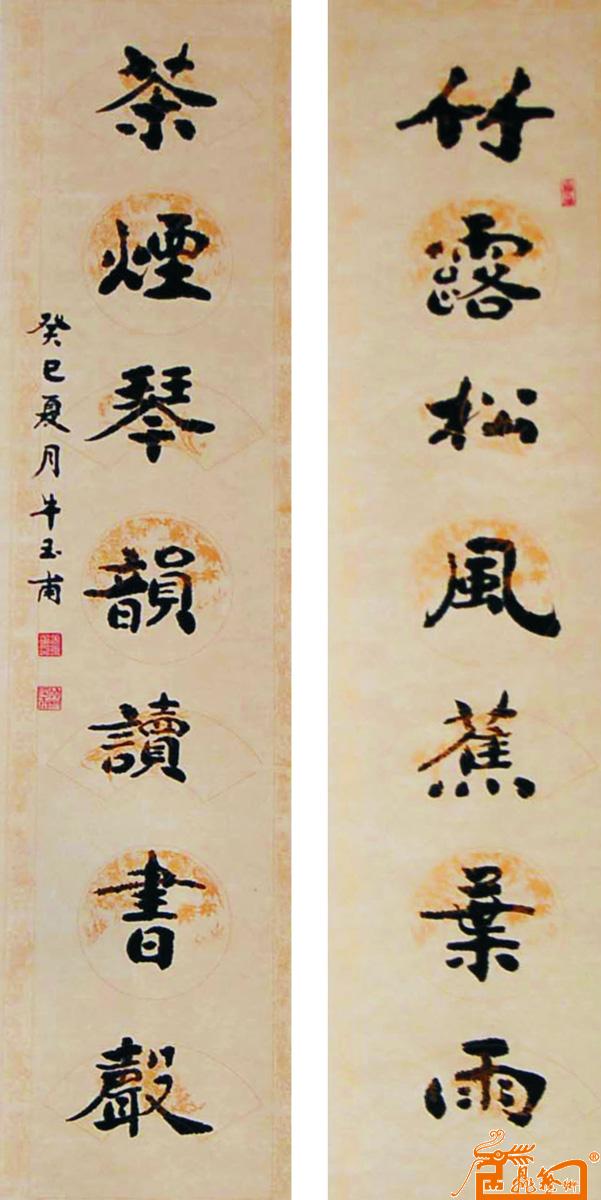 竹露松風蕉葉雨
茶煙琴韻讀書聲
癸巳夏月牛玉甫